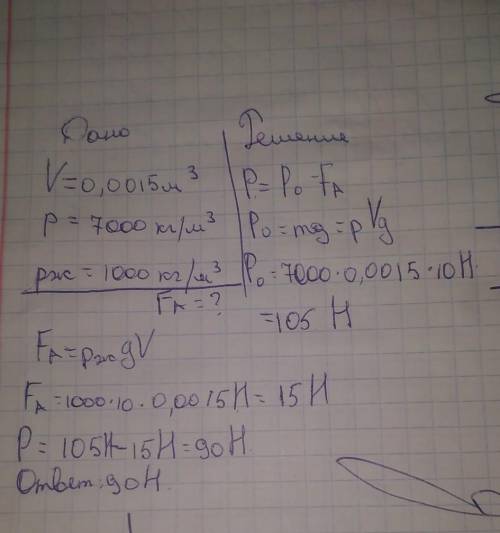 Дано
V=0,0015м³
р = 7000 кг/м³
рж = 1000 кг/м³
FА = ?
Решение
P = P₀ - FА
P₀ = mg = pVg
P₀ = 7000·0,0015·10Н
= 105 Н
FА = pж gV
FА = 1000·10·0,0015Н = 15Н
P = 105Н - 15Н = 90Н
Ответ: 90Н.